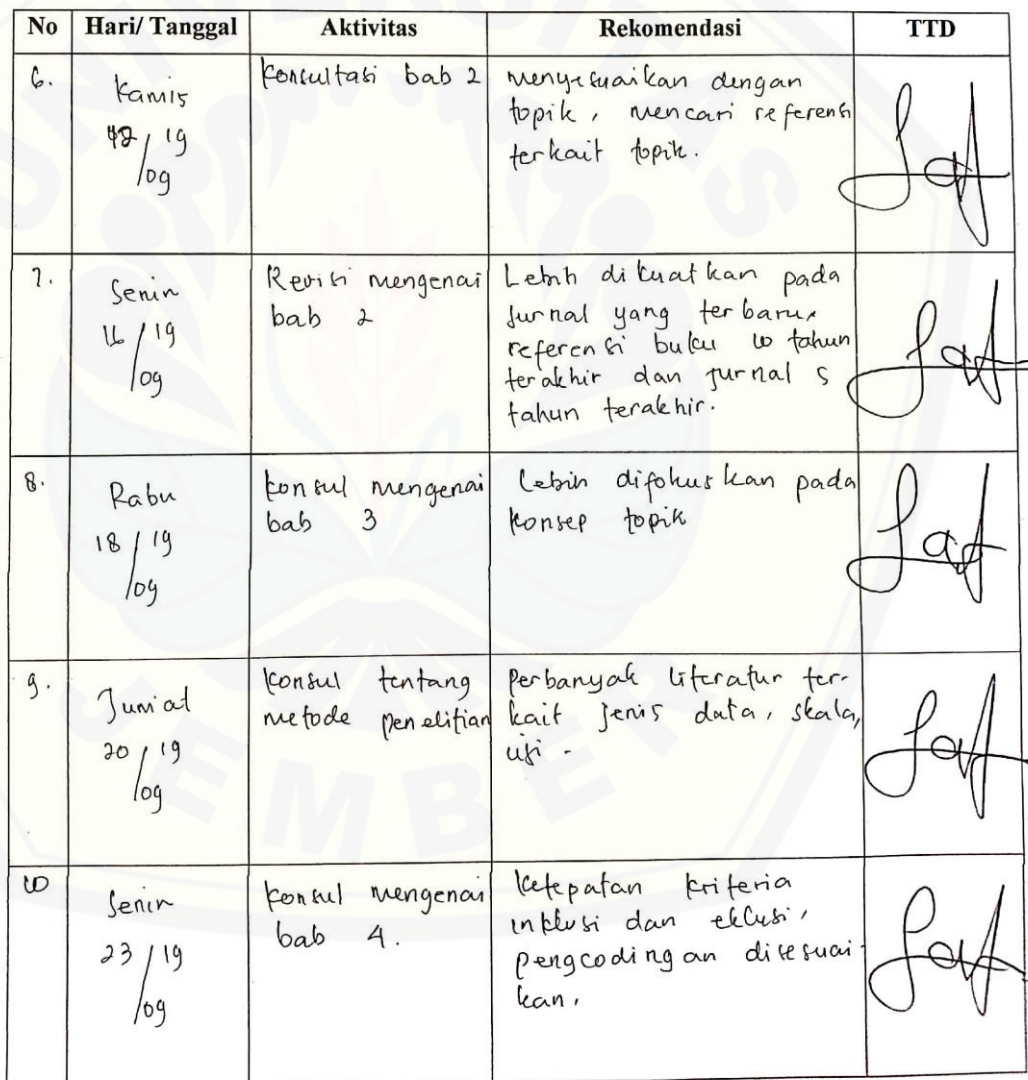 No Hari/ Tanggal Aktivitas Rekomendasi TTD
6. Kamis
12 / 19
/09
Konsultasi bab 2
menyesuaikan dengan
topik, mencari referensi
terkait topik.
7. Senin
16 / 19
/09
Revisi mengenai
bab 2
Lebih dikuatkan pada
jurnal yang terbaru,
referensi buku 10 tahun
terakhir dan jurnal 5
tahun terakhir.
8. Rabu
18 / 19
/09
konsul mengenai
bab 3
Lebih difokuskan pada
konsep topik
9. Jum'at
20 / 19
/09
Konsul tentang
metode penelitian
Perbanyak literatur ter-
kait jenis data, skala,
uji.
10 Senin
23 / 19
/09
konsul mengenai
bab 4.
Ketepatan kriteria
inklusi dan eklusi,
pengcodingan disesuai
kan.
UNIVERSITAS
JEMBER